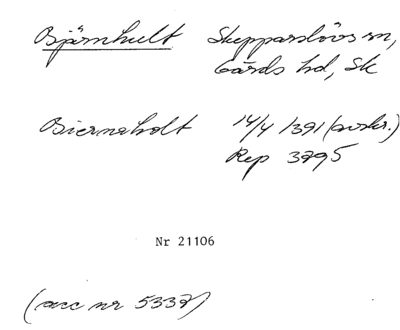 Björnhult Skepparslövs sn,
Gärds hd, Sk
Biernaholt 14/4 1391 (avskr.)
Rep 3295
Nr 21106
(acc nr 5332)